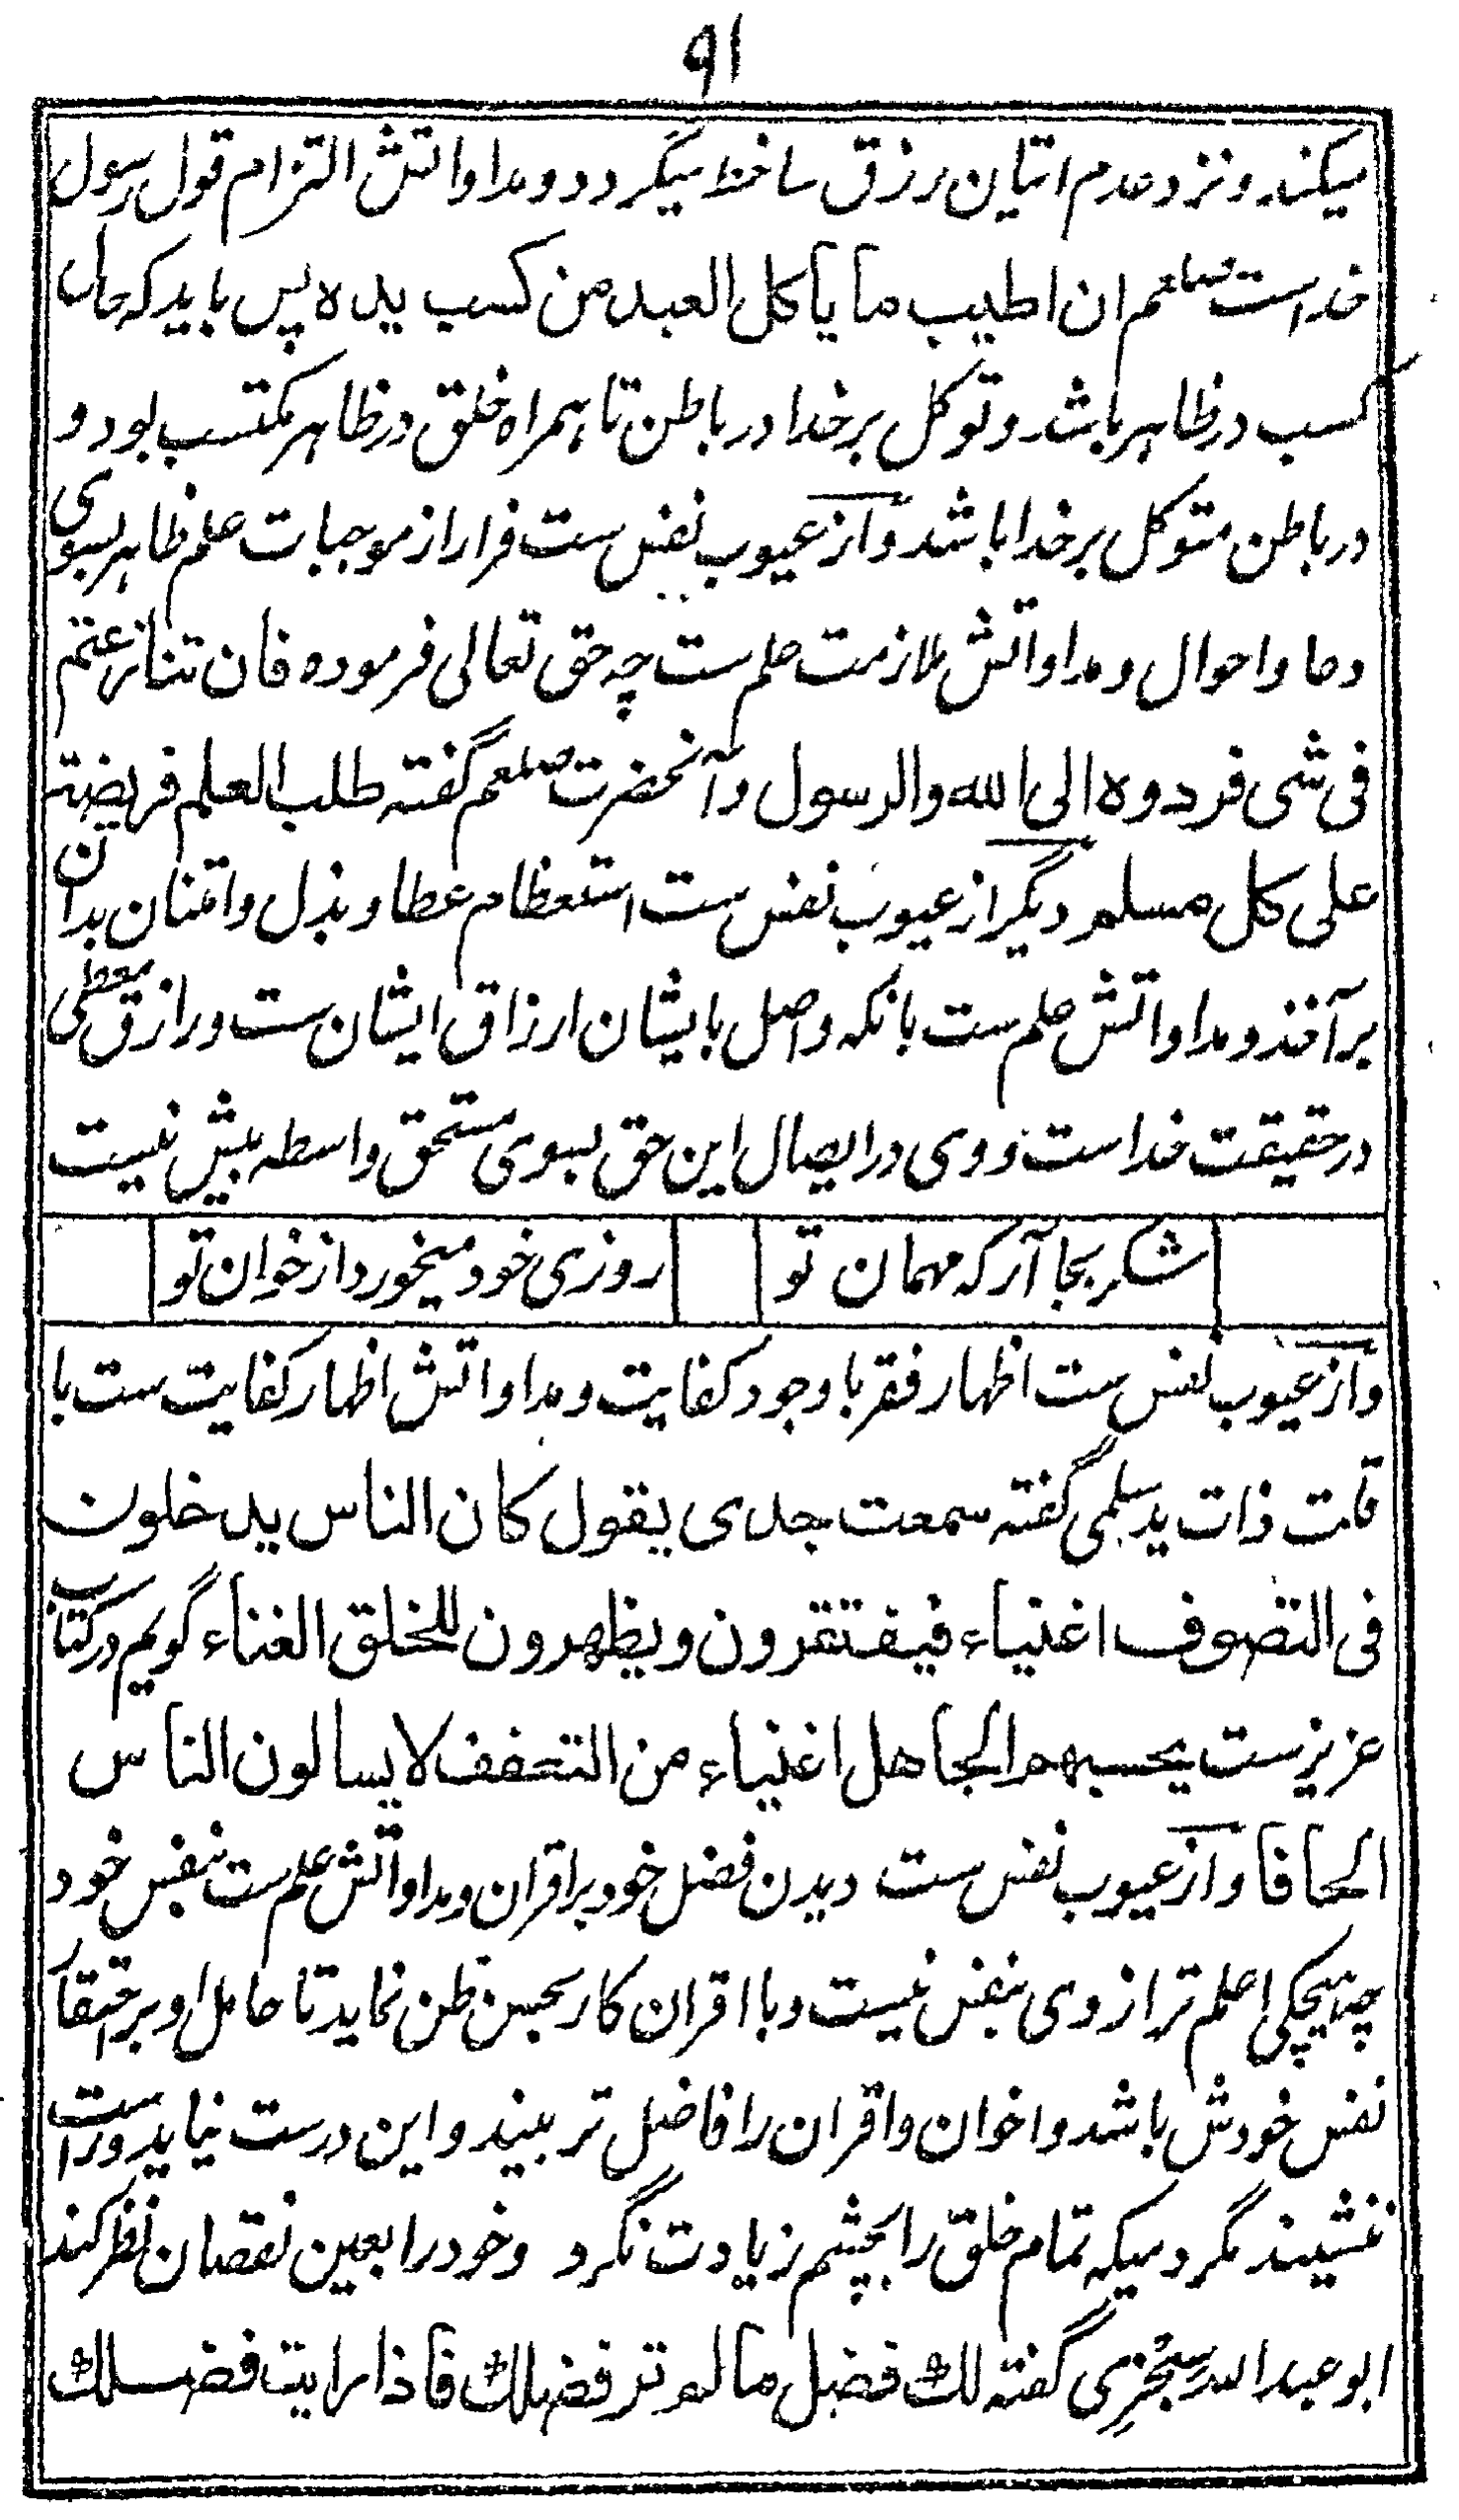 ۹۱
میکند و نزد عدم اتیان رزق ساخط میگردد و مداواتش التزام قول رسول
خداست صلعم ان اطیب ما یأکل العبد من کسب یده پس باید که حال
کسب در ظاهر باشد و توکل بر خدا در باطن تا همراه خلق در ظاهر مکتسب بود و
در باطن متوکل بر خدا باشد و از عیوب نفس ست فرار از موجبات علم ظاهر بسوی
دعا و احوال و مداواتش ملازمت علم ست چه حق تعالی فرموده فان تنازعتم
فی شی فردوه الی الله والرسول و آنحضرت صلعم گفته طلب العلم فریضة
علی کل مسلم دیگر از عیوب نفس ست استعظام عطا و بذل و امتنان بدان
بر آخذ و مداواتش علم ست بانکه واصل بایشان ارزاق ایشان ست و رازق معطی
در حقیقت خداست و وی در ایصال این حق بسوی مستحق واسطه بیش نیست
شکر بجا آر که مهمان تو روزی خود میخورد از خوان تو
و از عیوب نفس ست اظهار فقر با وجود کفایت و مداواتش اظهار کفایت ست با
قلت ذات ید سلمی گفته سمعت جدی یقول کان الناس یدخلون
فی التصوف اغنیاء فیفتقرون ویظهرون للخلق الغناء گویم در کتاب
عزیز ست یحسبهم الجاهل اغنیاء من التعفف لا یسالون الناس
الحافا و از عیوب نفس ست دیدن فضل خود بر اقران و مداواتش علم ست بنفس خود
چه هیچکی اعلم تر از وی بنفس نیست و با اقران کار بحسن ظن نماید تا حامل او بر احتقار
نفس خودش باشد و اخوان و اقران را فاضل تر بیند و این درست نیاید و راست
ننشیند مگر دمیکه تمام خلق را بچشم زیادت نگرد و خود را بعین نقصان نظر کند
ابو عبد الله سجزی گفته لك فضل ما لم تر فضلك فاذا رایت فضلك